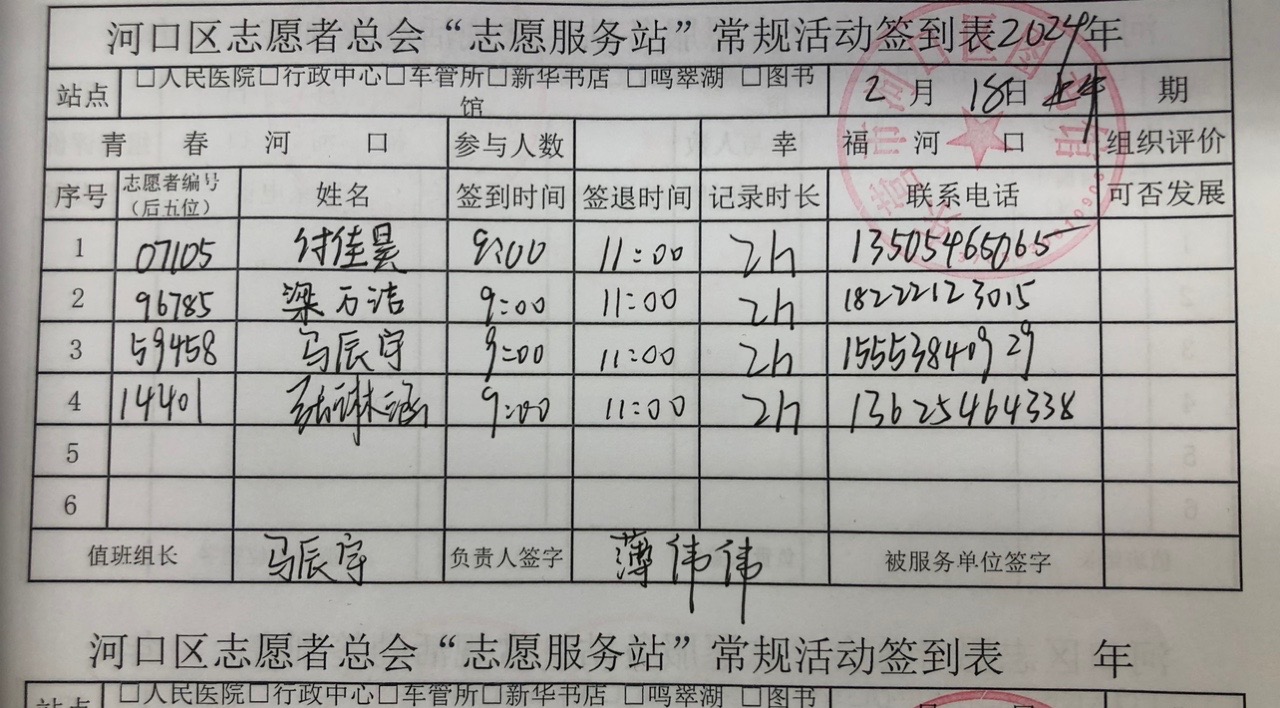 河口区志愿者总会“志愿服务站”常规活动签到表2024年
站点 □人民医院□行政中心□车管所□新华书店 □鸣翠湖 □图书馆 2月 18日 上午 期
青春河口 参与人数 幸福河口 组织评价
序号 志愿者编号（后五位） 姓名 签到时间 签退时间 记录时长 联系电话 可否发展
1 07105 付佳昊 9:00 11:00 2h 13505465065
2 96785 梁万洁 9:00 11:00 2h 18222123015
3 59458 马辰宇 9:00 11:00 2h 15553840929
4 14401 9:00 11:00 2h 13625464338
5
6
值班组长 马辰宇 负责人签字 薄伟伟 被服务单位签字
河口区志愿者总会“志愿服务站”常规活动签到表 年
站点 □人民医院□行政中心□车管所□新华书店 □鸣翠湖 □图书